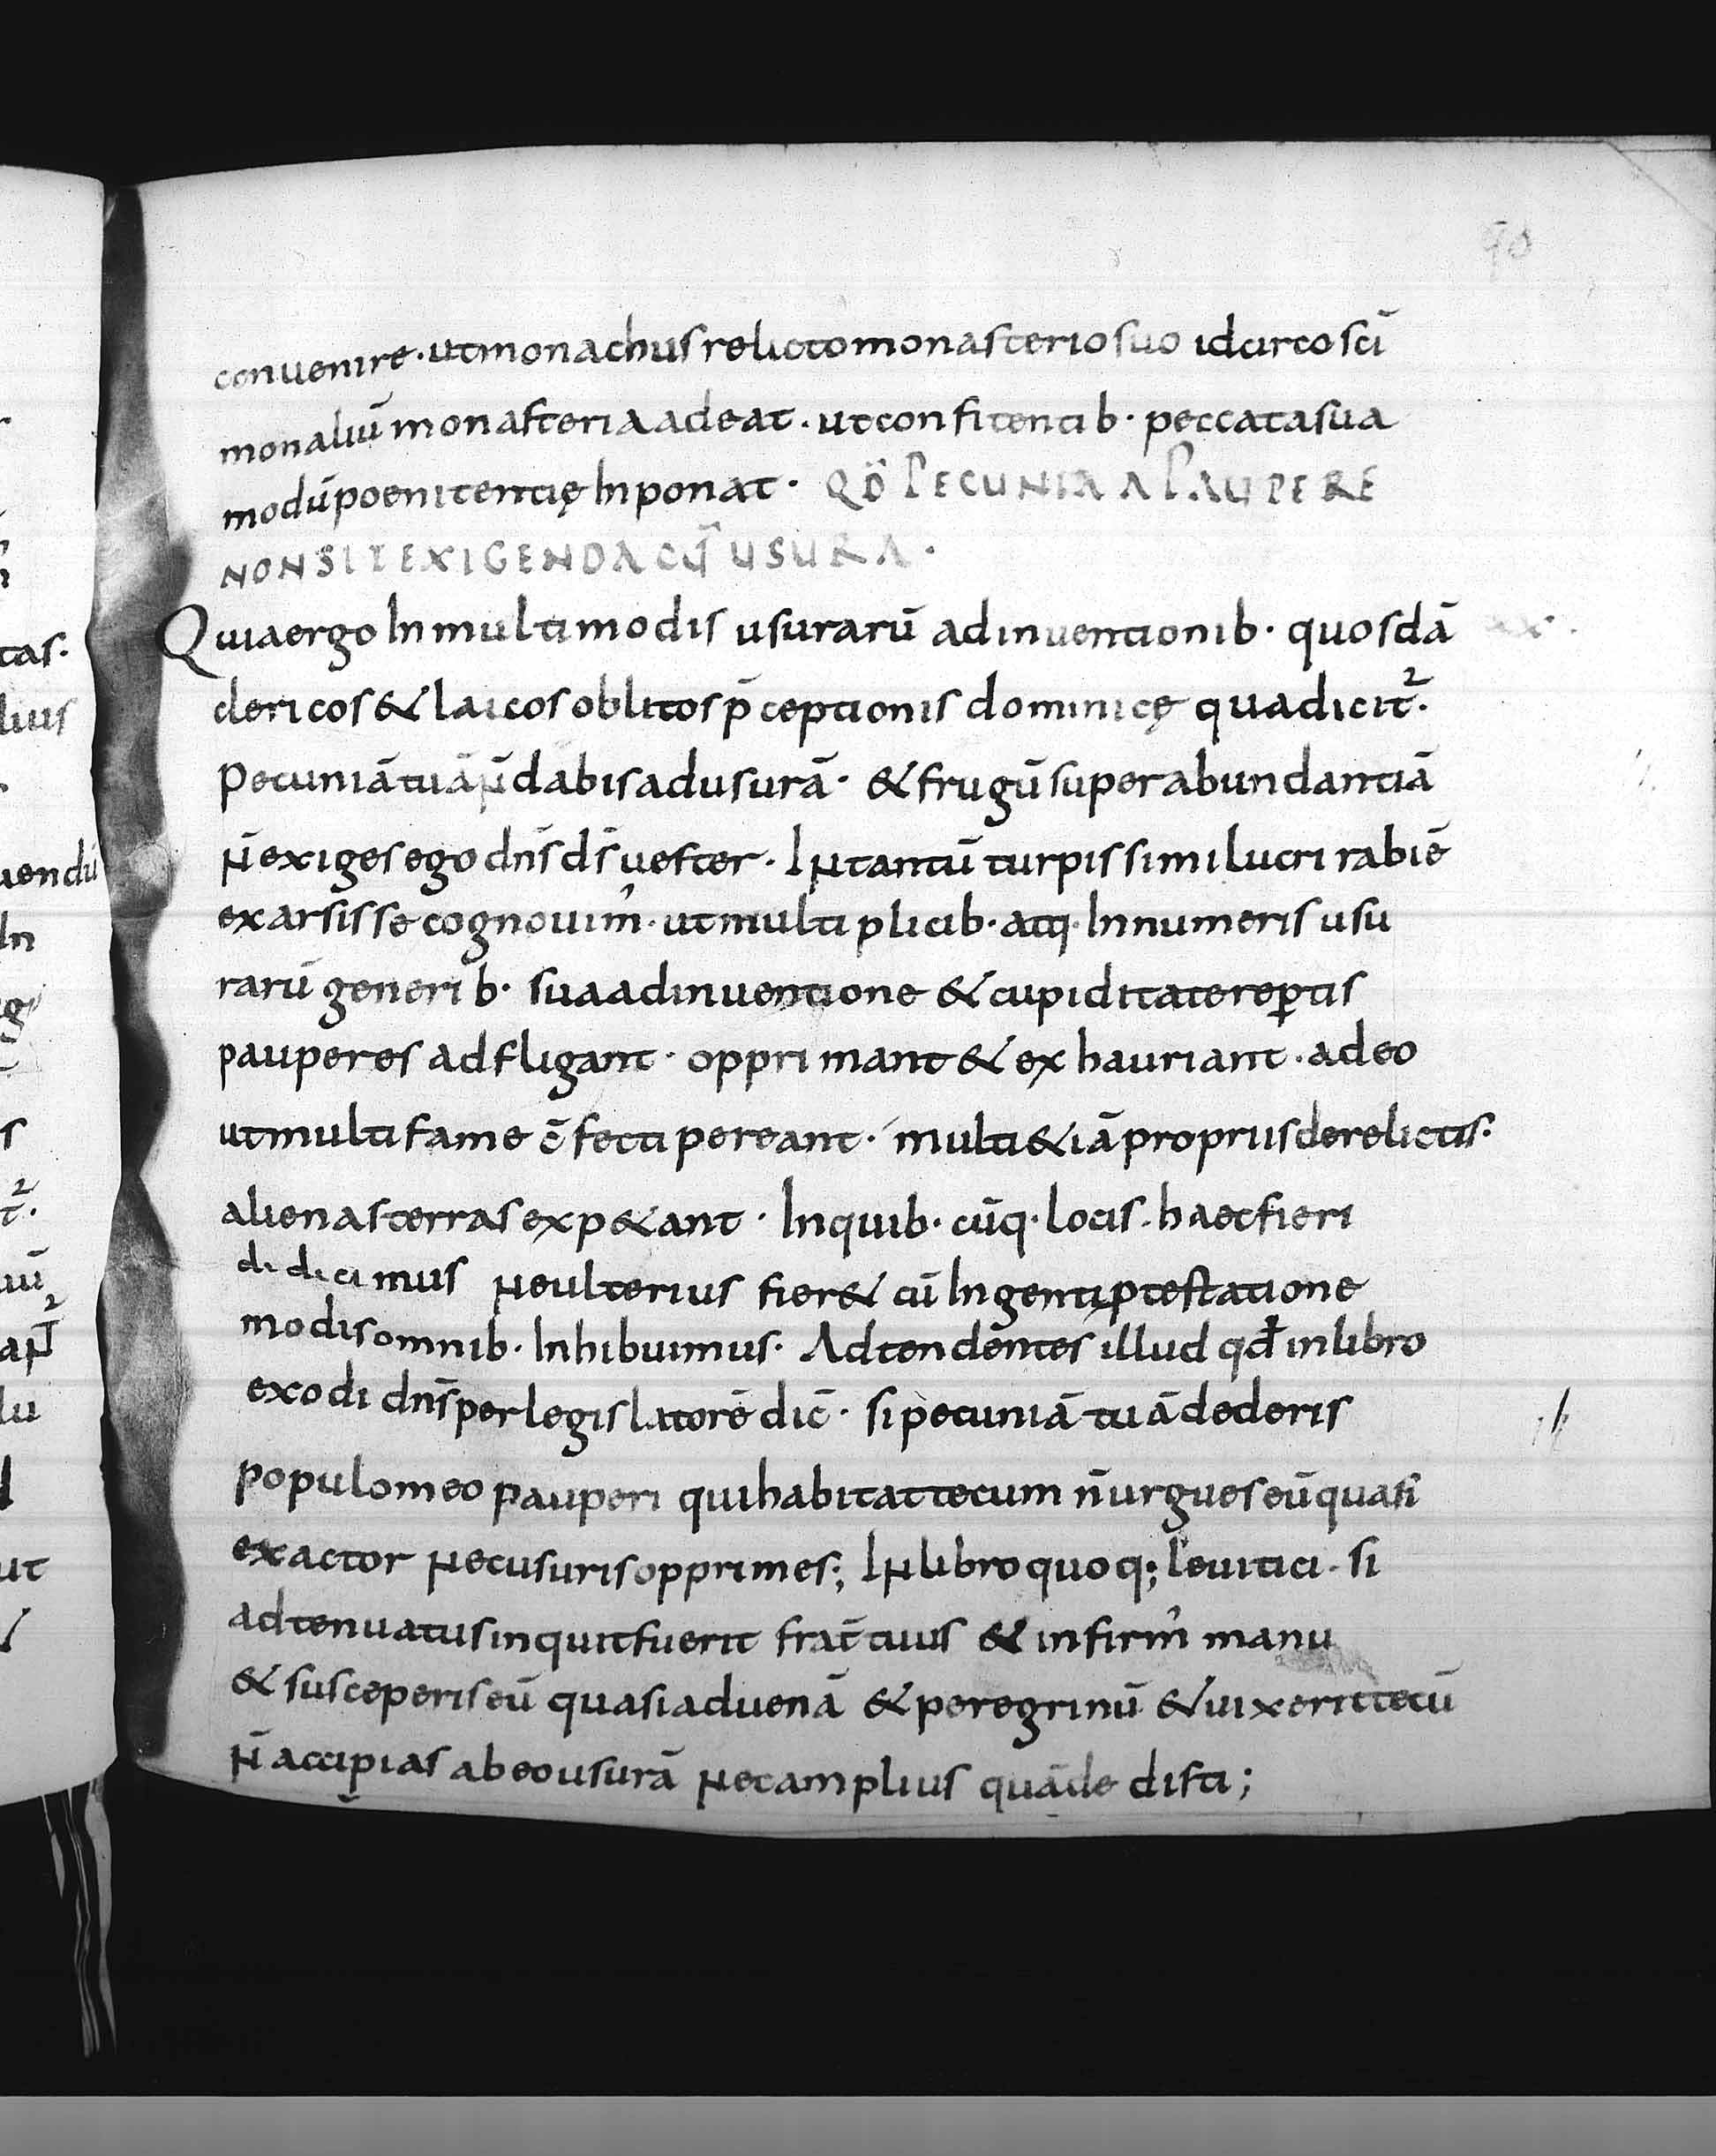 conuenire · ut monachus relicto monasterio suo idcirco sc̄i
monaliū monasteria adeat · ut confitentib· peccata sua
modū poenitentię Inponat · QD̄ PECUNIA A PAUPERE
NON SIT EXIGENDA CŪ USURA ·
Quia ergo In multimodis usurarū adinuentionib· quosdā
clericos & laicos oblitos p̄ceptionis dominicę qua dicit̄·
Pecuniā tuā N̄ dabis ad usurā · & frugū superabundantiā
N̄ exiges ego dn̄s ds̄ uester · IN tantū turpissimi lucri rabiē
exarsisse cognouim᾽ · ut multiplicib· atq· Innumeris usu
rarū generib· sua adinuentione & cupiditate rep̱tis
pauperes adfligant · opprimant & exhauriant · adeo
ut multi fame c̄fecti pereant · multi &iā propriis derelictis·
alienas terras exp&ant · Inquib· cūq· locis · haec fieri
didicimus Ne ulterius fier& cū Ingenti p̱testatione
modis omnib· Inhibuimus · Adtendentes illud qđ in libro
exodi dn̄s per legislatorē dic̄ · si pecuniā tuā dederis
populo meo pauperi qui habitat tecum n̄ urgues eū quasi
exactor Nec usuris opprimes; IN libro quoq; leuitici · si
adtenuatus inquit fuerit frat̄ tuus & infirm᾽ manu
& susceperis eū quasi aduenā & peregrinū & uixerit tecū
N̄ accipias ab eo usurā Nec amplius quā dedisti;